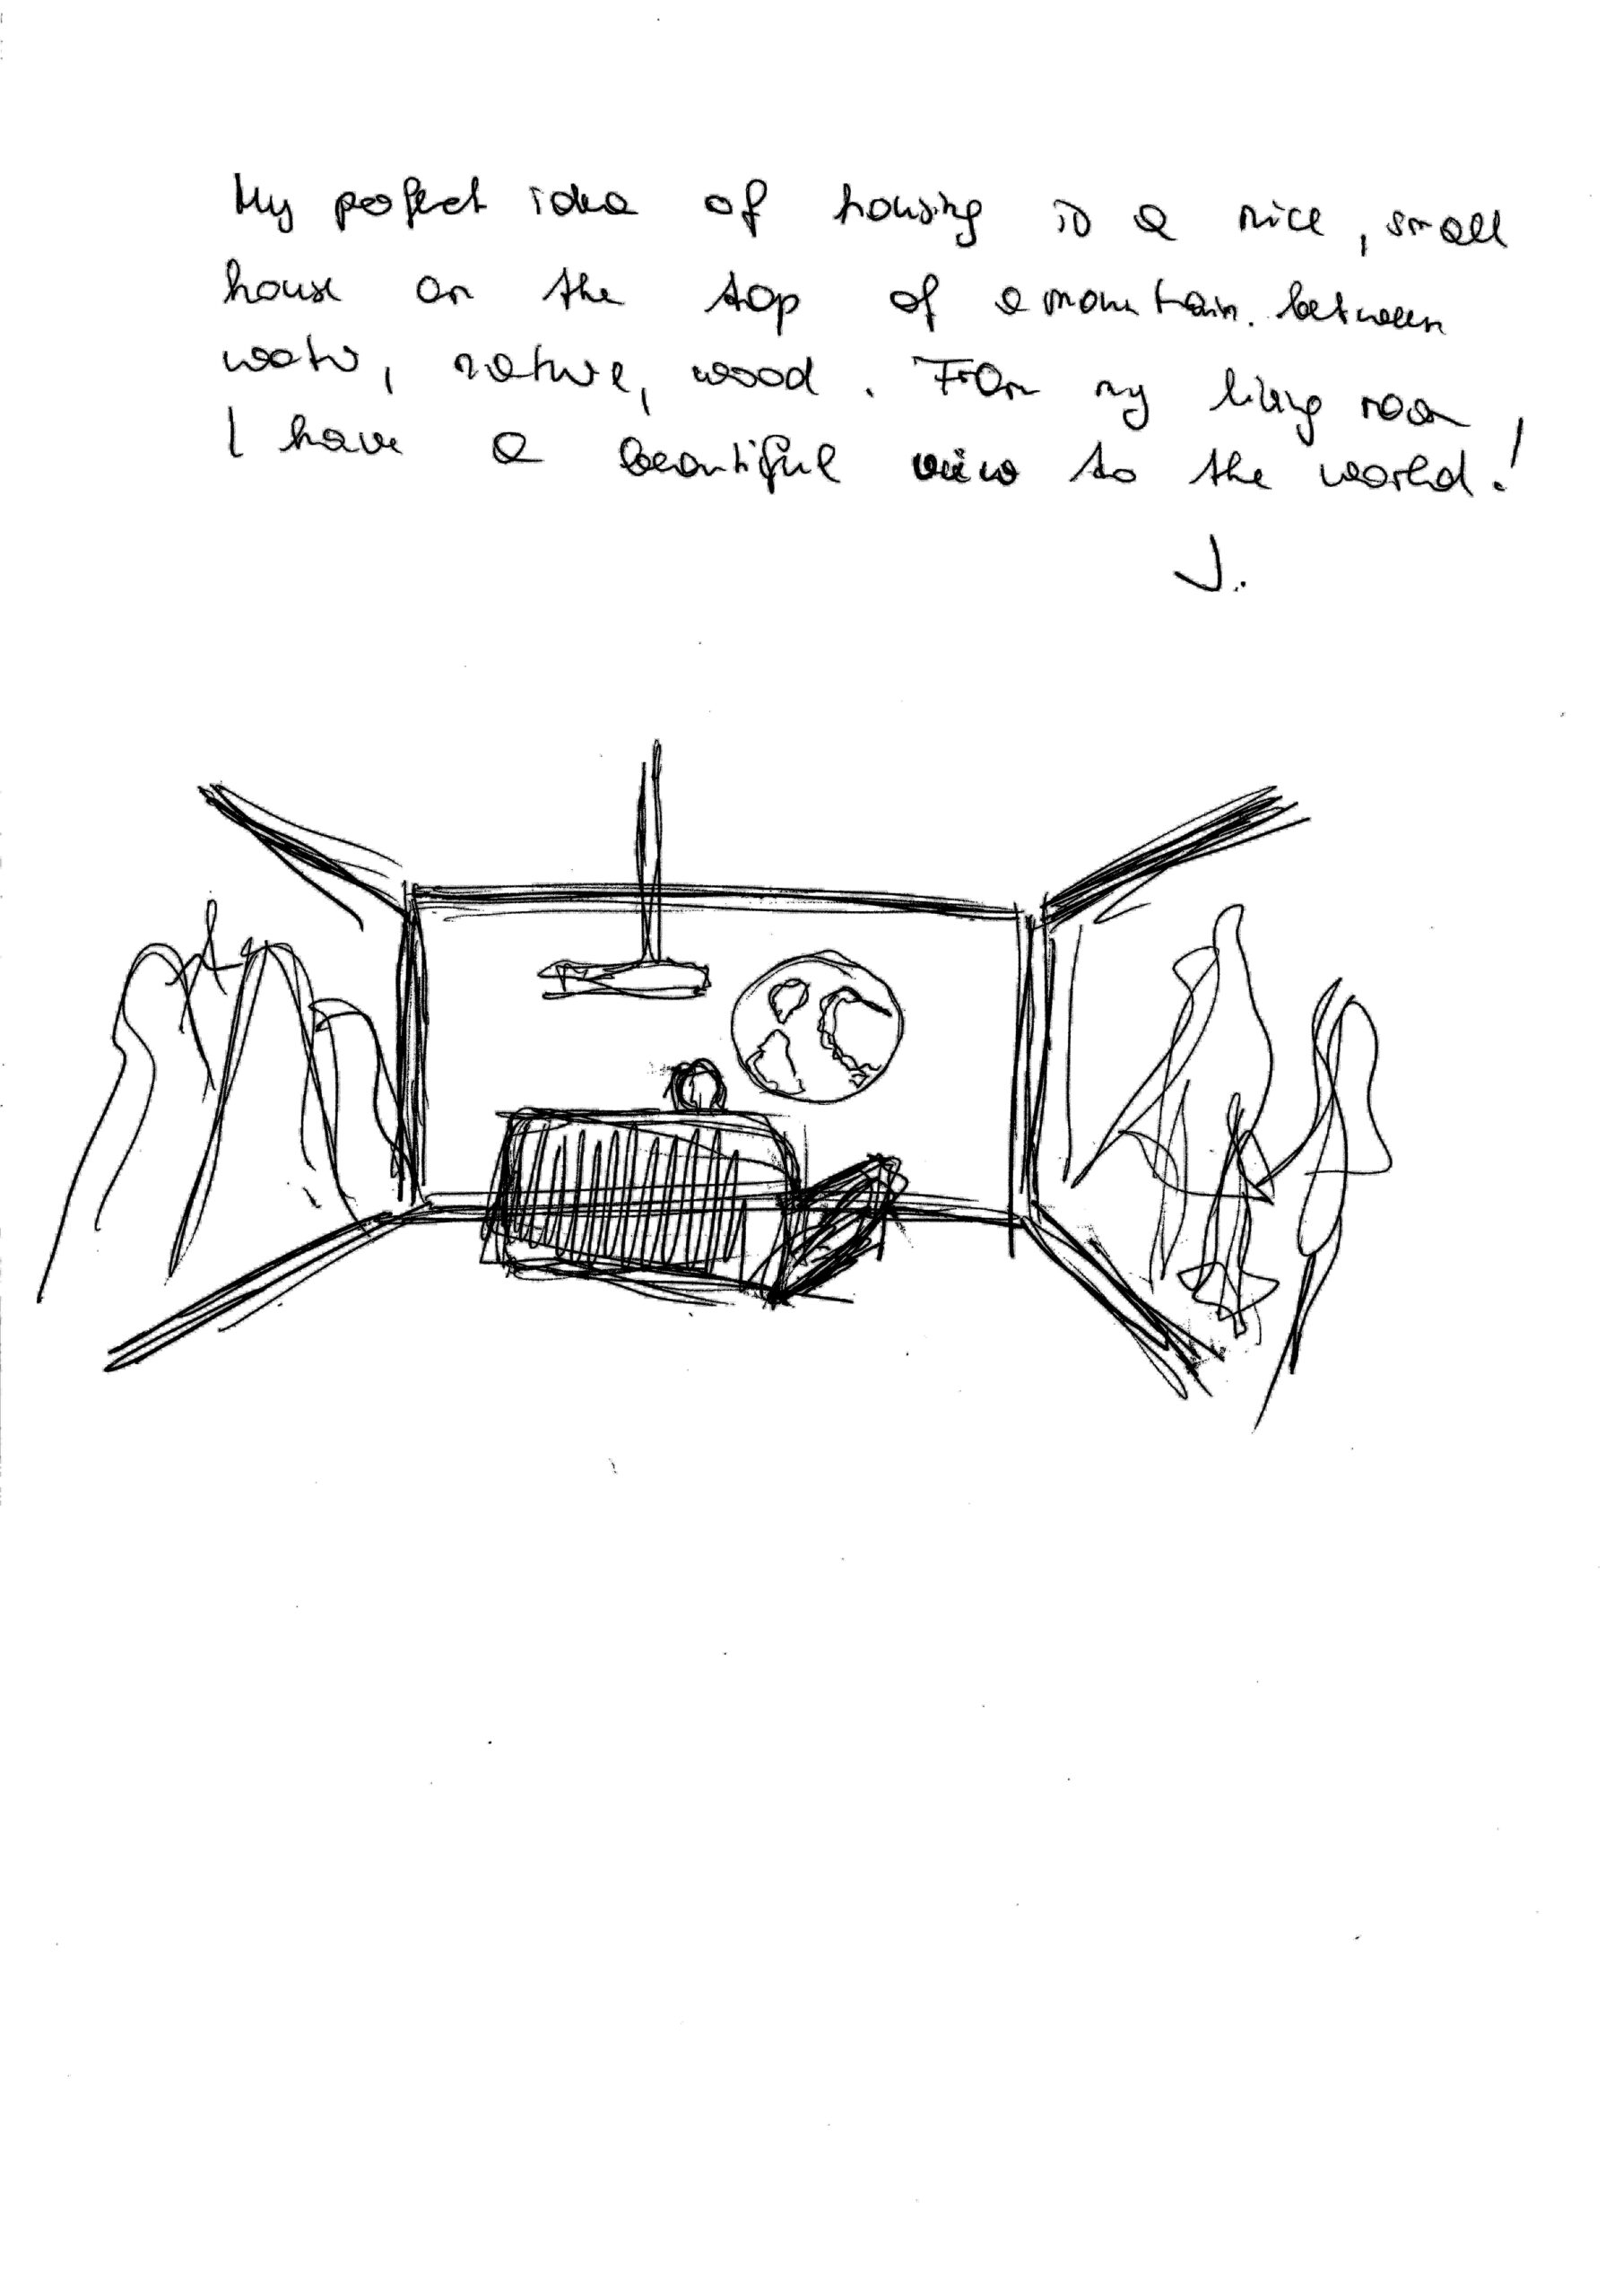 My perfect idea of housing is a nice, small
house on the top of a mountain. between
water, nature, wood. From my living room
I have a beautiful view to the world!
J.